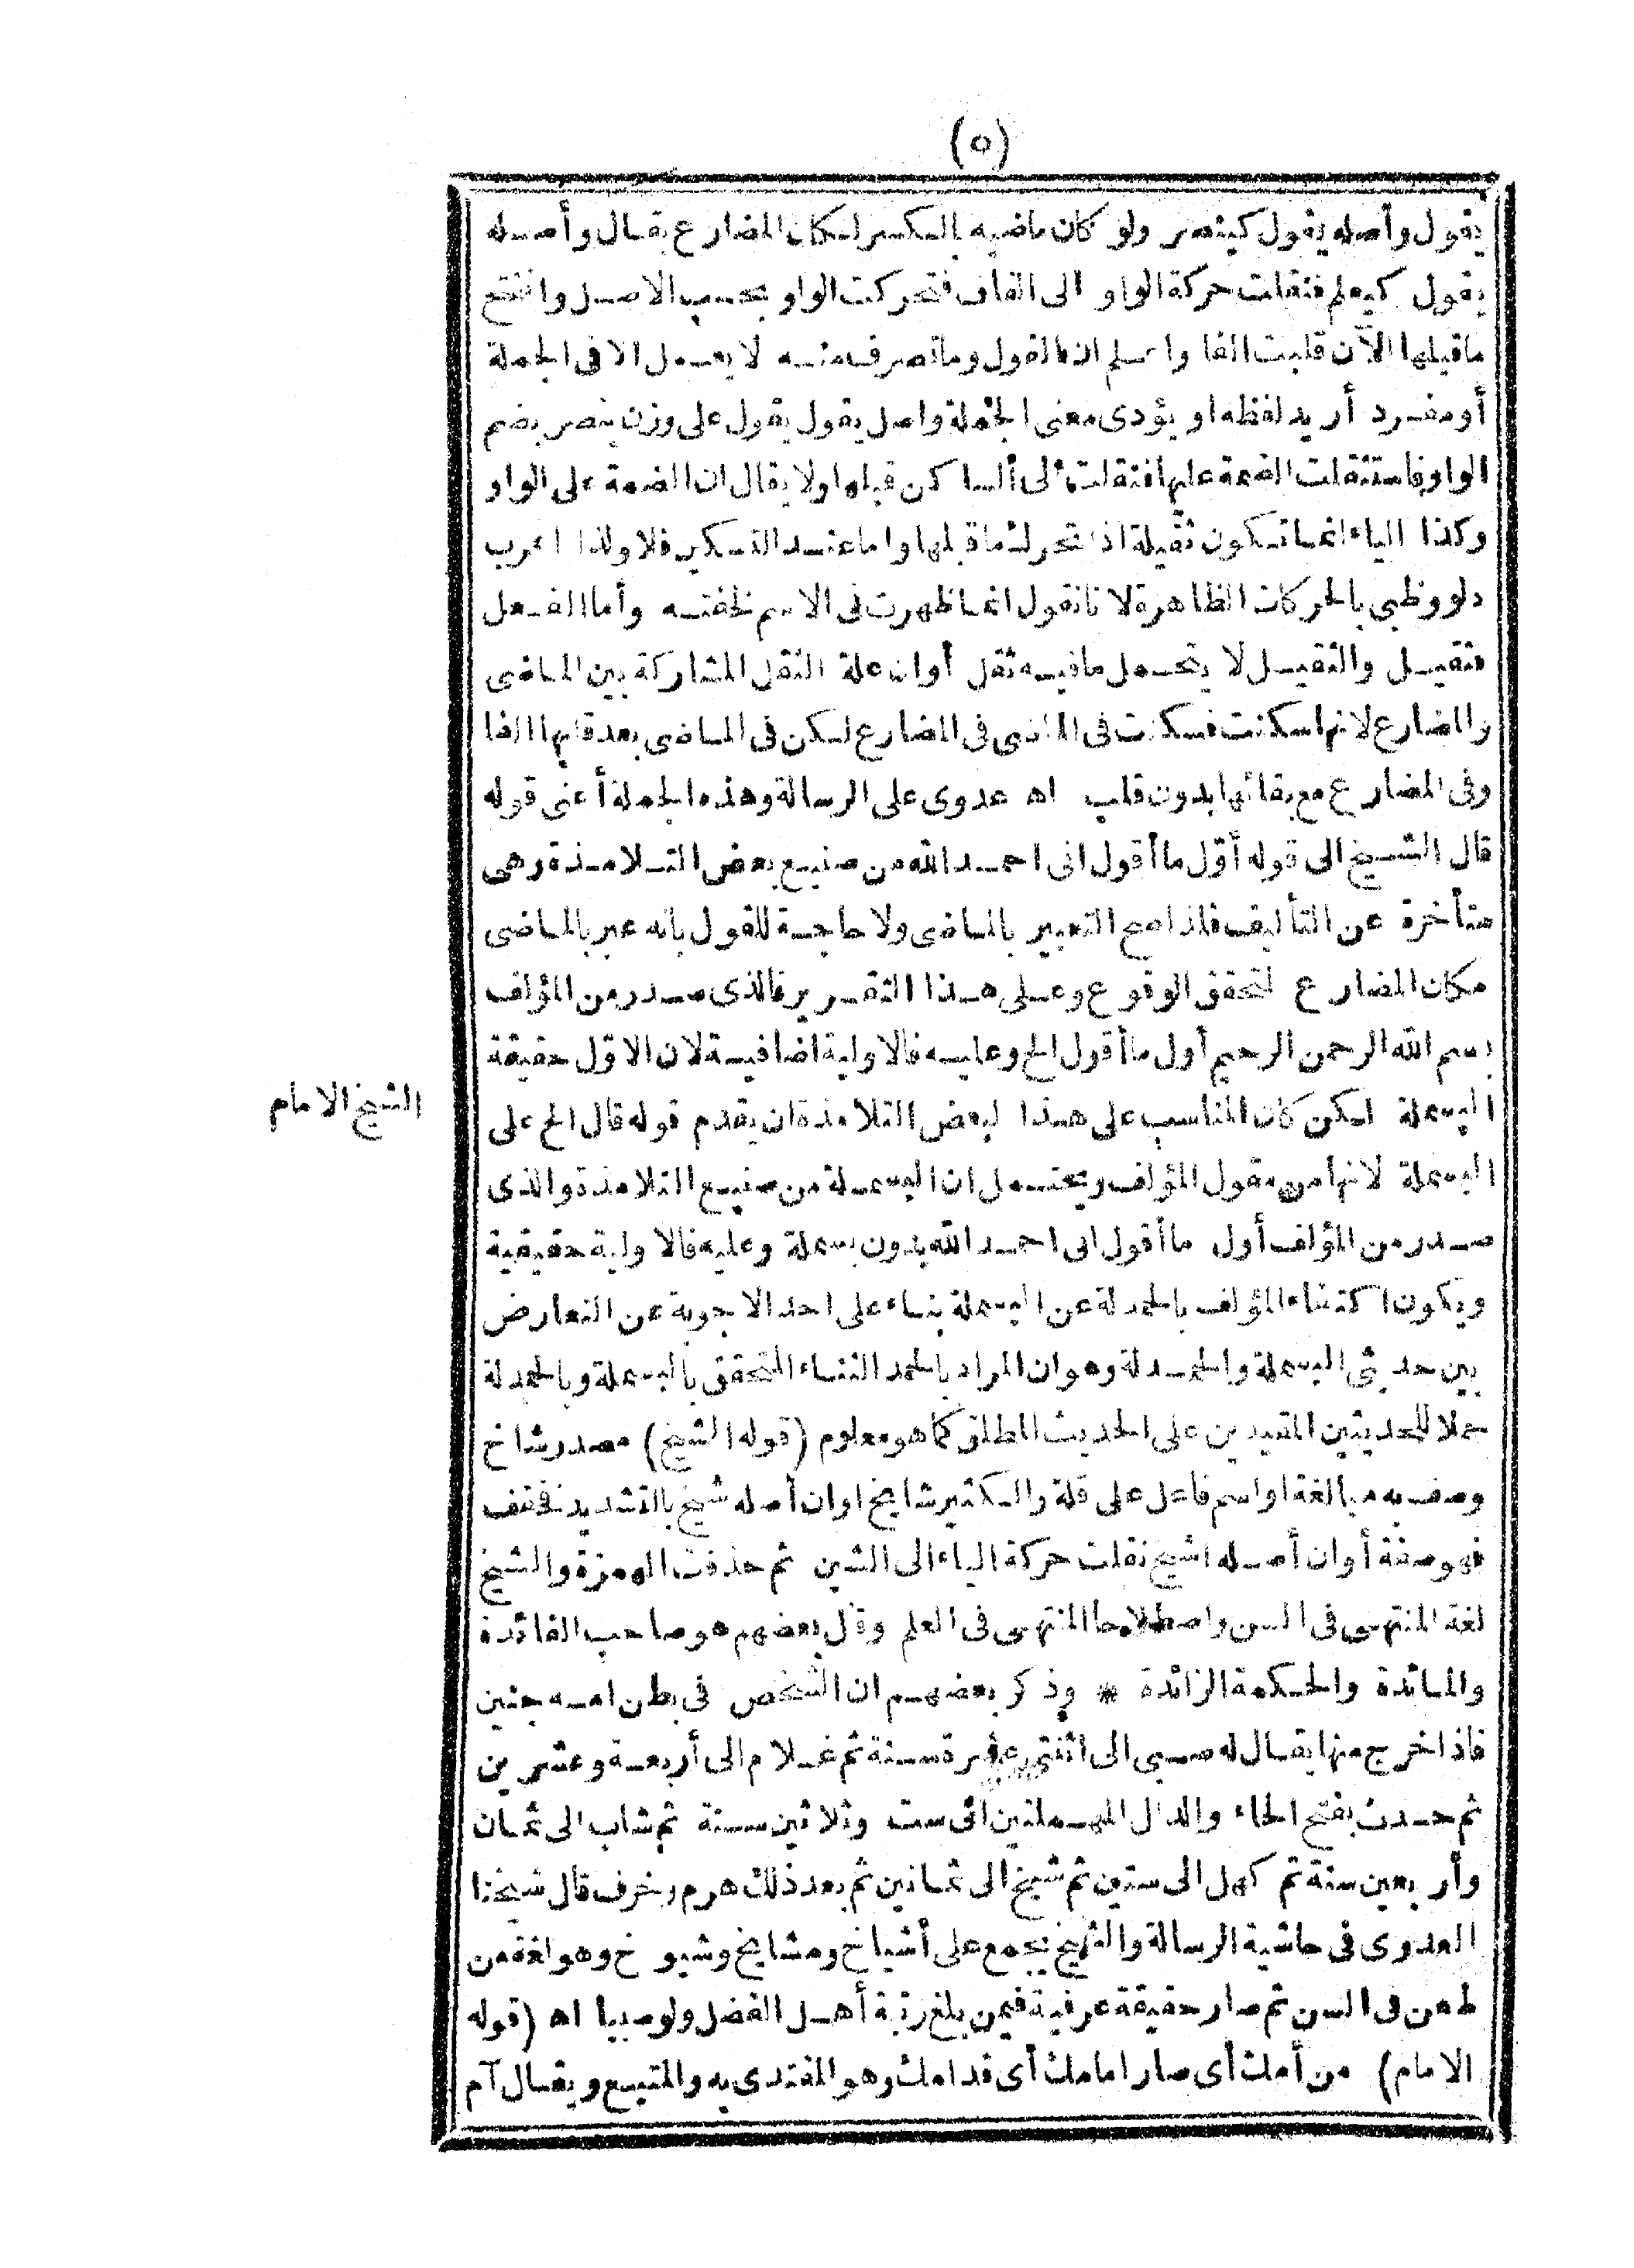 (٥)
يقول وأصله يقول كينصر ولو كان ماضيه بالكسر لكان المضارع يقال وأصله
يقول كيعلم فنقلت حركة الواو الى القاف فتحركت الواو بحسب الاصل وانفتح
ما قبلها الآن قلبت الفا واعلم ان القول وما تصرف منه لا يعمل الا فى الجملة
أو مفرد أريد لفظه او يؤدى معنى الجملة واصل يقول يقول على وزن ينصر بضم
الواو فاستثقلت الضمة عليها فنقلت الى الساكن قبلها ولا يقال ان الضمة على الواو
وكذا الياء انما تكون ثقيلة اذا تحرك ما قبلها واما عند التسكين فلا ولذا اعرب
دلو وظبى بالحركات الظاهرة لانا نقول انما ظهرت فى الاسم لخفته وأما الفعل
فثقيل والثقيل لا يتحمل ما فيه ثقل أو ان علة النقل المشاركة بين الماضى
والمضارع لانها سكنت فسكنت فى الماضى فى المضارع لكن فى الماضى بعد قلبها الفا
وفى المضارع مع بقائها بدون قلب اه عدوى على الرسالة وهذه الجملة أعنى قوله
قال الشيخ الى قوله أوّل ما أقول انى احمد الله من صنيع بعض التلامذة وهى
متأخرة عن التأليف فلذا صح التعبير بالماضى ولا حاجة للقول بانه عبر بالماضى
مكان المضارع لتحقق الوقوع وعلى هذا التقرير فالذى صدر من المؤلف
بسم الله الرحمن الرحيم أول ما أقول الخ وعليه فالاولية اضافية لان الاوّل حقيقة
البسملة لكن كان المناسب على هذا لبعض التلامذة ان يقدم قوله قال الخ على
البسملة لانها من مقول المؤلف ويحتمل ان البسملة من صنيع التلامذة والذى
صدر من المؤلف أول ما أقول انى احمد الله بدون بسملة وعليه فالاولية حقيقية
ويكون اكتفاء المؤلف بالحمدلة عن البسملة بناء على احد الاجوبة عن التعارض
بين حديثى البسملة والحمدلة وهو ان المراد بالحمد الثناء المتحقق بالبسملة وبالحمدلة
حملا للحديثين المقيدين على الحديث المطلق كما هو معلوم (قوله الشيخ) مصدر شاخ
وصف به مبالغة او اسم فاعل على قلة والكثير شايخ او ان أصله شيخ بالتشديد فخفف
فهو صفة أو ان أصله اشيخ نقلت حركة الياء الى الشين ثم حذفت الهمزة والشيخ
لغة المنتهى فى السن واصطلاحا المنتهى فى العلم وقال بعضهم هو صاحب الفائدة
والمائدة والحكمة الزائدة * وذكر بعضهم ان الشخص فى بطن امه جنين
فاذا خرج منها يقال له صبى الى اثنتى عشرة سنة ثم غلام الى أربعة وعشرين
ثم حدث بفتح الحاء والدال المهملتين الى ست وثلاثين سنة ثم شاب الى ثمان
وأربعين سنة ثم كهل الى ستين ثم شيخ الى ثمانين ثم بعد ذلك هرم وخرف قال شيخنا
العدوى فى حاشية الرسالة والشيخ يجمع على أشياخ ومشايخ وشيوخ وهو لغة من
طعن فى السن ثم صار حقيقة عرفية فيمن بلغ رتبة أهل الفضل ولو صبيا اه (قوله
الامام) من أمك أى صار امامك أى قدامك وهو المقتدى به والمتبع ويقال آم
الشيخ الامام